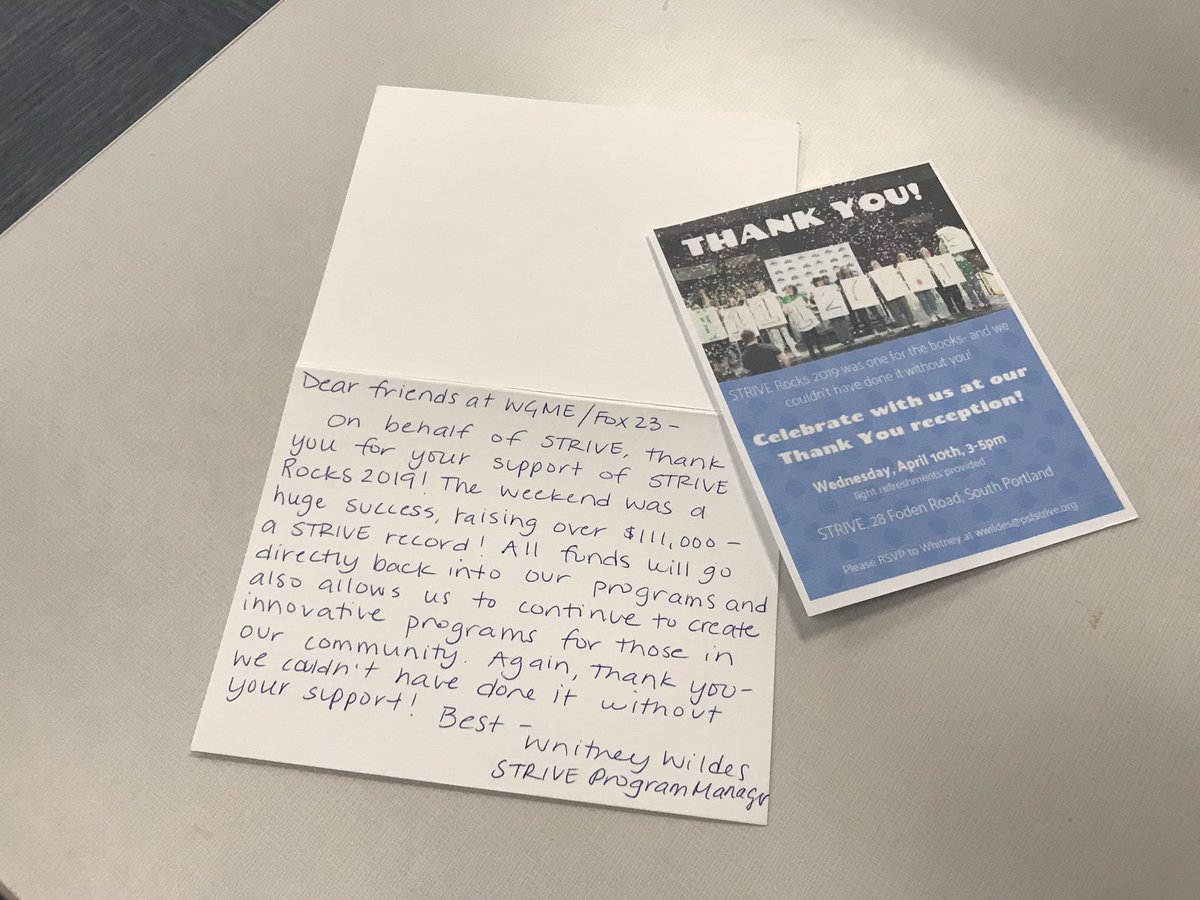 Dear friends at WGME/FOX 23 -
On behalf of STRIVE, thank
you for your support of STRIVE
Rocks 2019! The weekend was a
huge success, raising over $111,000 -
a STRIVE record! All funds will go
directly back into our programs and
also allows us to continue to create
innovative programs for those in
our community. Again, thank you-
we couldn't have done it without
your support! Best -
Whitney Wildes
STRIVE Program Managr
THANK YOU!
STRIVE Rocks 2019 was one for the books- and we
couldn't have done it without you!
Celebrate with us at our
Thank You reception!
Wednesday, April 10th, 3-5pm
light refreshments provided
STRIVE, 28 Foden Road, South Portland
Please RSVP to Whitney at wwildes@pslstrive.org